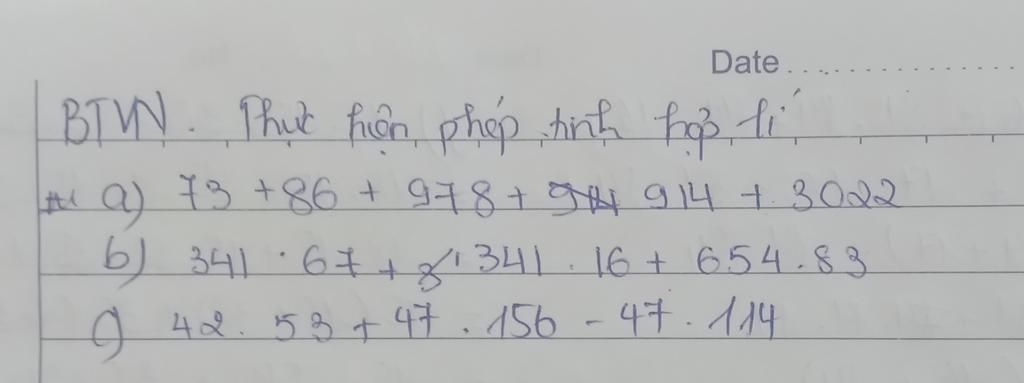 Date...............
BTVN. Thực hiện phép tính hợp lí
a) 73 + 86 + 978 + 914 + 3022
b) 341 . 67 + 341 . 16 + 654 . 83
c) 42 . 53 + 47 . 156 - 47 . 114